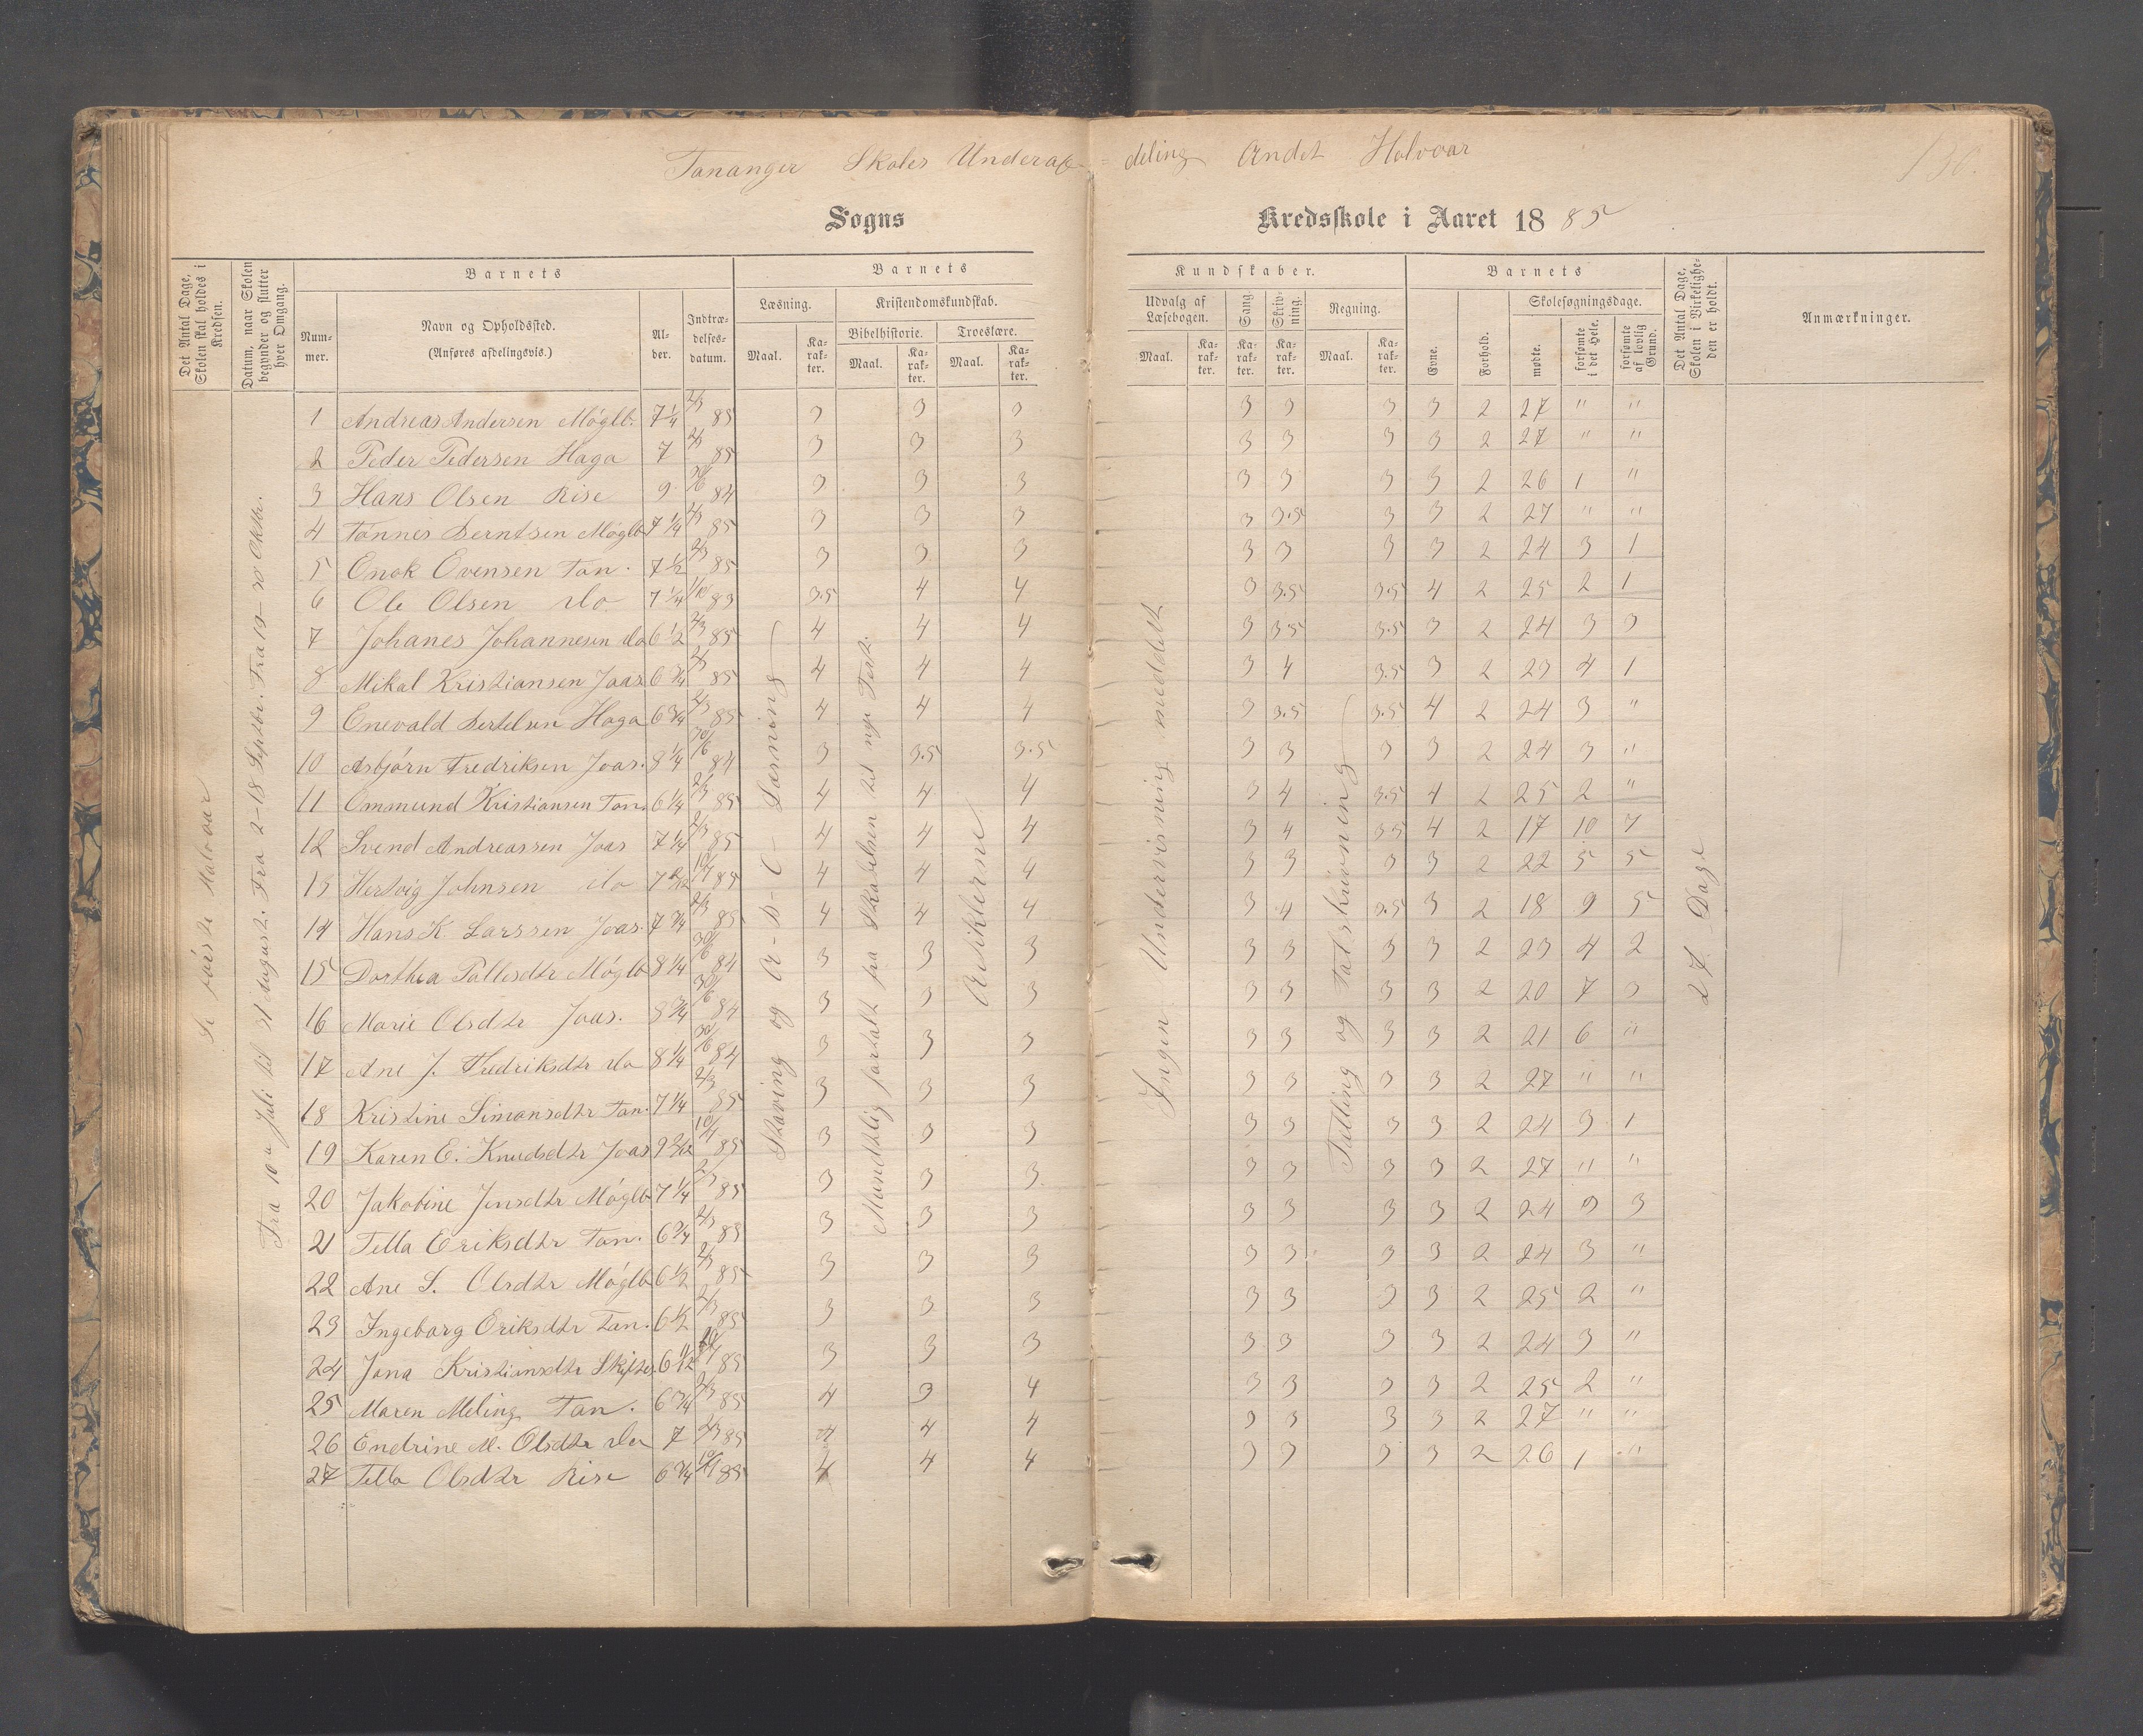 Tananger Skoles Underaf=deling Andet Halvaar
130.
Sogns Kredsskole i Aaret 1885
Det Antal Dage, Skolen skal holdes i Kredsen.
Datum, naar Skolen begynder og slutter hver Omgang.
Barnets
Nummer.
Navn og Opholdssted.
(Anføres afdelingsvis.)
Alder.
Indtrædelsesdatum.
Barnets
Læsning.
Maal.
Karakter.
Kristendomskundskab.
Bibelhistorie.
Maal.
Karakter.
Troeslære.
Maal.
Karakter.
Kundskaber.
Udvalg af Læsebogen.
Maal.
Karakter.
Sang.
Karakter.
Skrivning.
Karakter.
Regning.
Maal.
Karakter.
Barnets
Evne.
Forhold.
Skolesøgningsdage.
mødte.
forsømte i det Hele.
forsømte af lovlig Grund.
Det Antal Dage, Skolen i Virkeligheden er holdt.
Anmærkninger.
Se første Halvaar
Fra 10de Juli til 31 August. Fra 2-18 Septbr. Fra 19-30 Oktbr.
Stavning og A-B-C-Læsning
Mundtlig fortalt fra Skabelsen til nye Test.
Artiklerne
Ingen Undervisning meddelt
Tælling og Talskrivning
27 Dage
1 Andreas Andersen Møglb. 7 1/4 2/3 85 3 3 3 3 3 3 3 2 27 " "
2 Peder Pedersen Haga 7 2/3 85 3 3 3 3 3 3 3 2 27 " "
3 Hans Olsen Rise 9 30/6 84 3 3 3 3 3 3 3 2 26 1 "
4 Tønnes Berntsen Møglb 7 1/4 2/3 85 3 3 3 3 3.5 3 3 2 27 " "
5 Enok Evensen Tan. 7 1/2 2/3 85 3 3 3 3 3 3 3 2 24 3 1
6 Ole Olsen do 7 1/4 1/10 83 3.5 4 4 3 3.5 3.5 4 2 25 2 1
7 Johanes Johannesen do 6 1/2 2/3 85 4 4 4 3 3.5 3.5 3 2 24 3 3
8 Mikal Kristiansen Joas 6 3/4 2/3 85 4 4 4 3 4 3.5 3 2 23 4 1
9 Enevald Bertelsen Haga 6 3/4 2/3 85 4 4 4 3 3.5 3.5 4 2 24 3 "
10 Asbjørn Fredriksen Joas. 8 1/4 30/6 84 3 3.5 3.5 3 3 3 3 2 24 3 "
11 Ommund Kristiansen Tan. 6 1/4 2/3 85 4 4 4 3 4 3.5 4 2 25 2 "
12 Svend Andreassen Joas 7 1/4 2/3 85 4 4 4 3 4 3.5 4 2 17 10 7
13 Hertvig Johnsen do 7 2/12 10/7 85 4 4 4 3 3 3 3 2 22 5 5
14 Hans K. Larssen Joas. 7 3/4 2/3 85 4 4 4 3 4 3.5 3 2 18 9 5
15 Dorthea Pallesdtr Møglb 8 1/4 30/6 84 3 3 3 3 3 3 3 2 23 4 2
16 Marie Olsdtr Joas. 8 3/4 30/6 84 3 3 3 3 3 3 3 2 20 7 3
17 Ane J. Fredriksdtr do 8 1/4 30/6 84 3 3 3 3 3 3 3 2 21 6 "
18 Kristine Simonsdtr Tan. 7 1/4 2/3 85 3 3 3 3 3 3 3 2 27 " "
19 Karen E. Knudsdtr Joas 9 2/12 10/7 85 3 3 3 3 3 3 3 2 24 3 1
20 Jakobine Jensdtr Møglb 7 1/4 2/3 85 3 3 3 3 3 3 3 2 27 " "
21 Tella Eriksdtr Tan. 6 3/4 2/3 85 3 3 3 3 3 3 3 2 24 3 3
22 Ane S. Olsdtr Møglb 6 1/2 2/3 85 3 3 3 3 3 3 3 2 24 3 "
23 Ingeborg Eriksdtr Tan. 6 1/2 2/3 85 3 3 3 3 3 3 3 2 25 2 "
24 Jona Kristiansdtr 85 3 3 3 3 3 3 3 2 24 3 "
25 Maren Meling Tan. 6 3/4 2/3 85 4 3 4 3 3 3 3 2 25 2 "
26 Endrine M. Olsdtr do 7 2/3 85 4 4 4 3 3 3 3 2 27 " "
27 Tella Olsdtr Rise 6 3/4 10/7 85 4 4 4 3 3 3 3 2 26 1 "